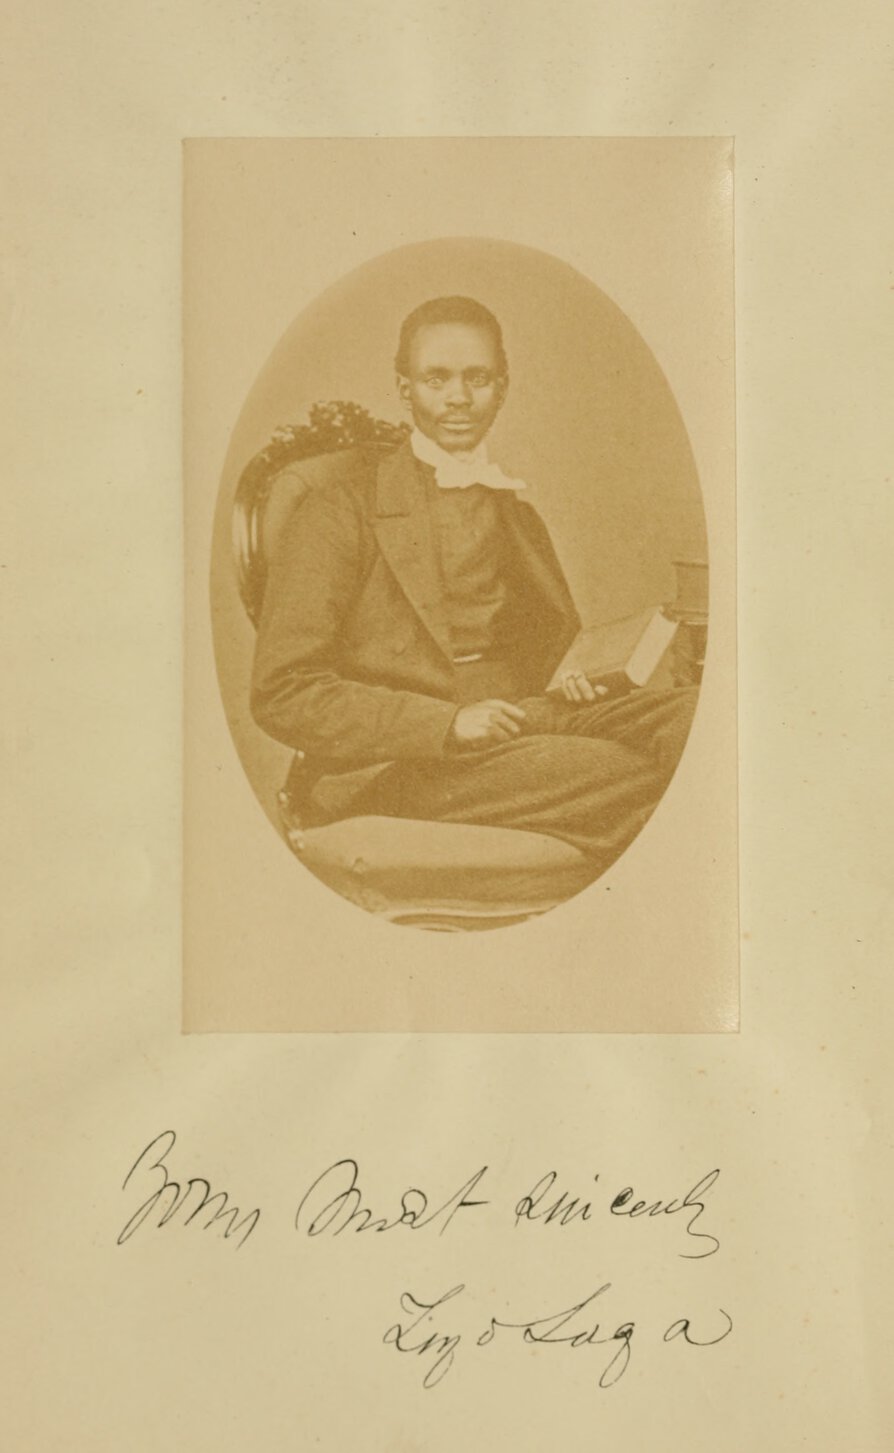 Yours Most Sincerely
Tiyo Soga